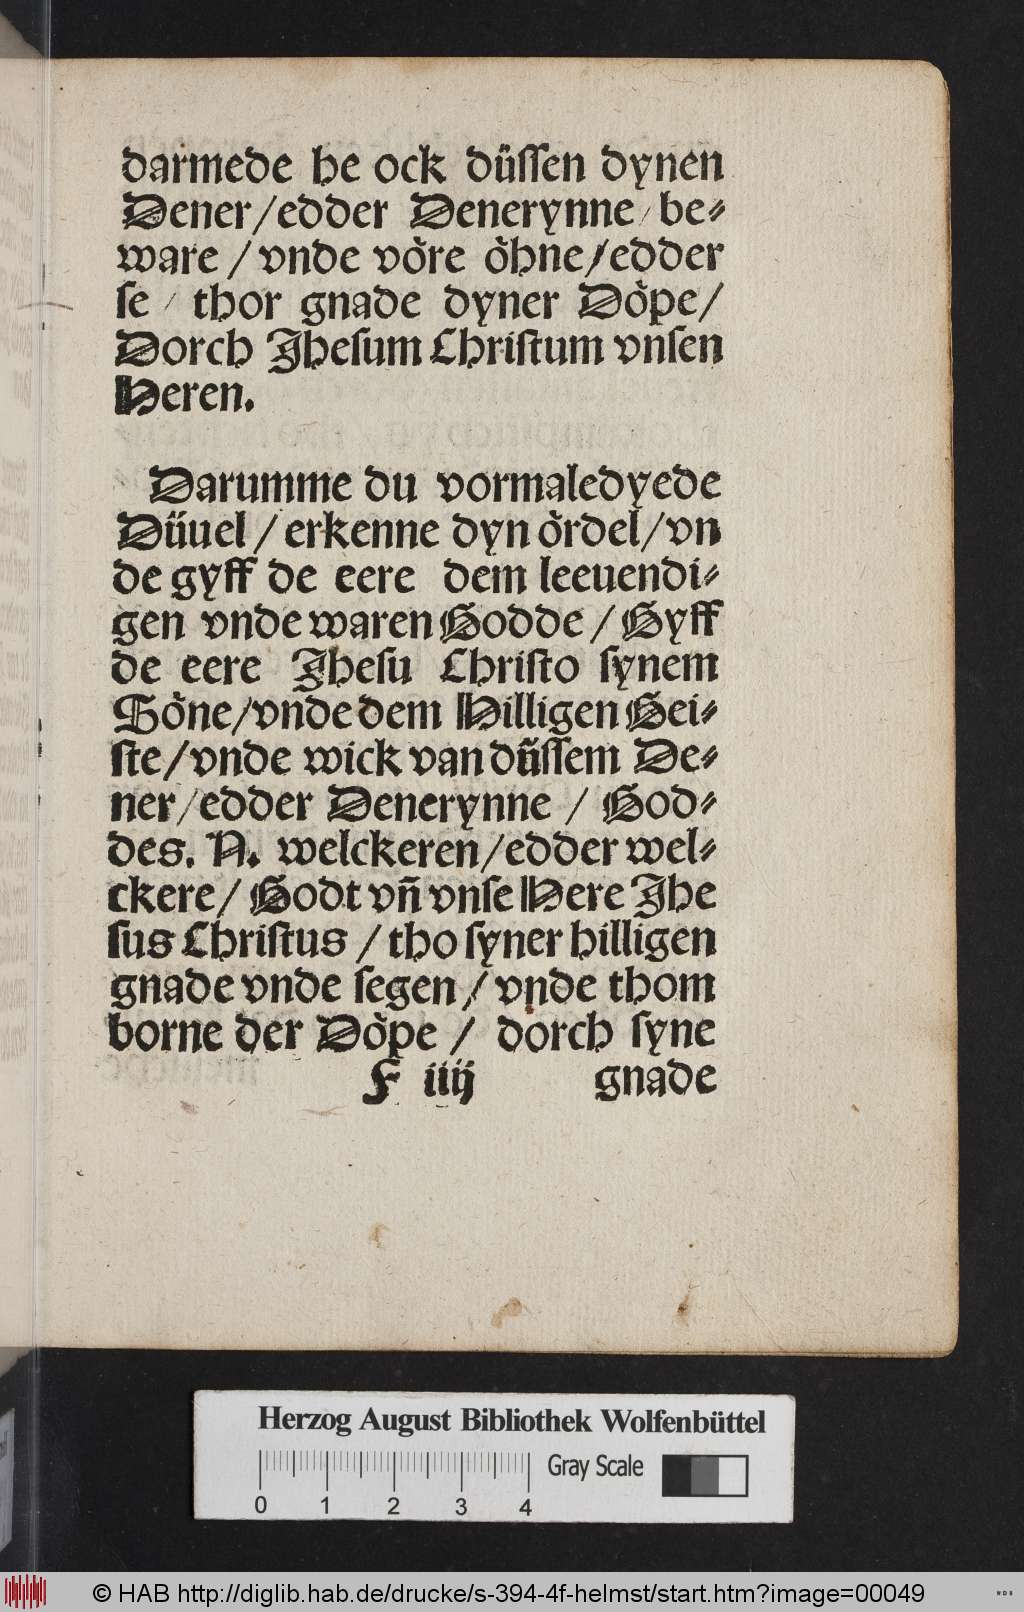 darmede he ock düſſen dynen
Dener/edder Denerynne/be⸗
ware/vnde vöre öhne/edder
ſe/thor gnade dyner Döpe/
Dorch Jheſum Chriſtum vnſen
Heren.
Darumme du vormaledyede
Düuel/erkenne dyn ördel/vn
de gyff de eere dem leeuendi⸗
gen vnde waren Godde/Gyff
de eere Jheſu Chriſto ſynem
Söne/vnde dem Hilligen Gei⸗
ſte/vnde wick van düſſem De⸗
ner/edder Denerynne/God⸗
des. N. welckeren/edder wel⸗
ckere/Godt vñ vnſe Here Jhe
ſus Chriſtus/tho ſyner hilligen
gnade vnde ſegen/vnde thom
borne der Döpe/dorch ſyne
F iiij gnade
Herzog August Bibliothek Wolfenbüttel
Gray Scale
0 1 2 3 4
© HAB http://diglib.hab.de/drucke/s-394-4f-helmst/start.htm?image=00049